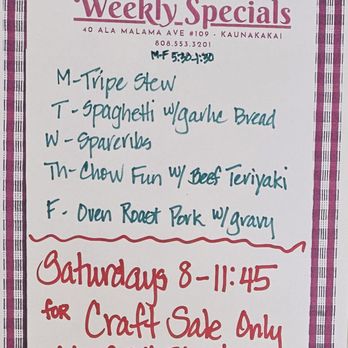 Weekly Specials
40 ALA MALAMA AVE #109 - KAUNAKAKAI
808.553.3201
M-F 5:30-1:30
M-Tripe Stew
T-Spaghetti w/garlic Bread
W-Spareribs
Th-Chow Fun w/ Beef Teriyaki
F-Oven Roast Pork w/gravy
Saturdays 8-11:45
for Craft Sale Only